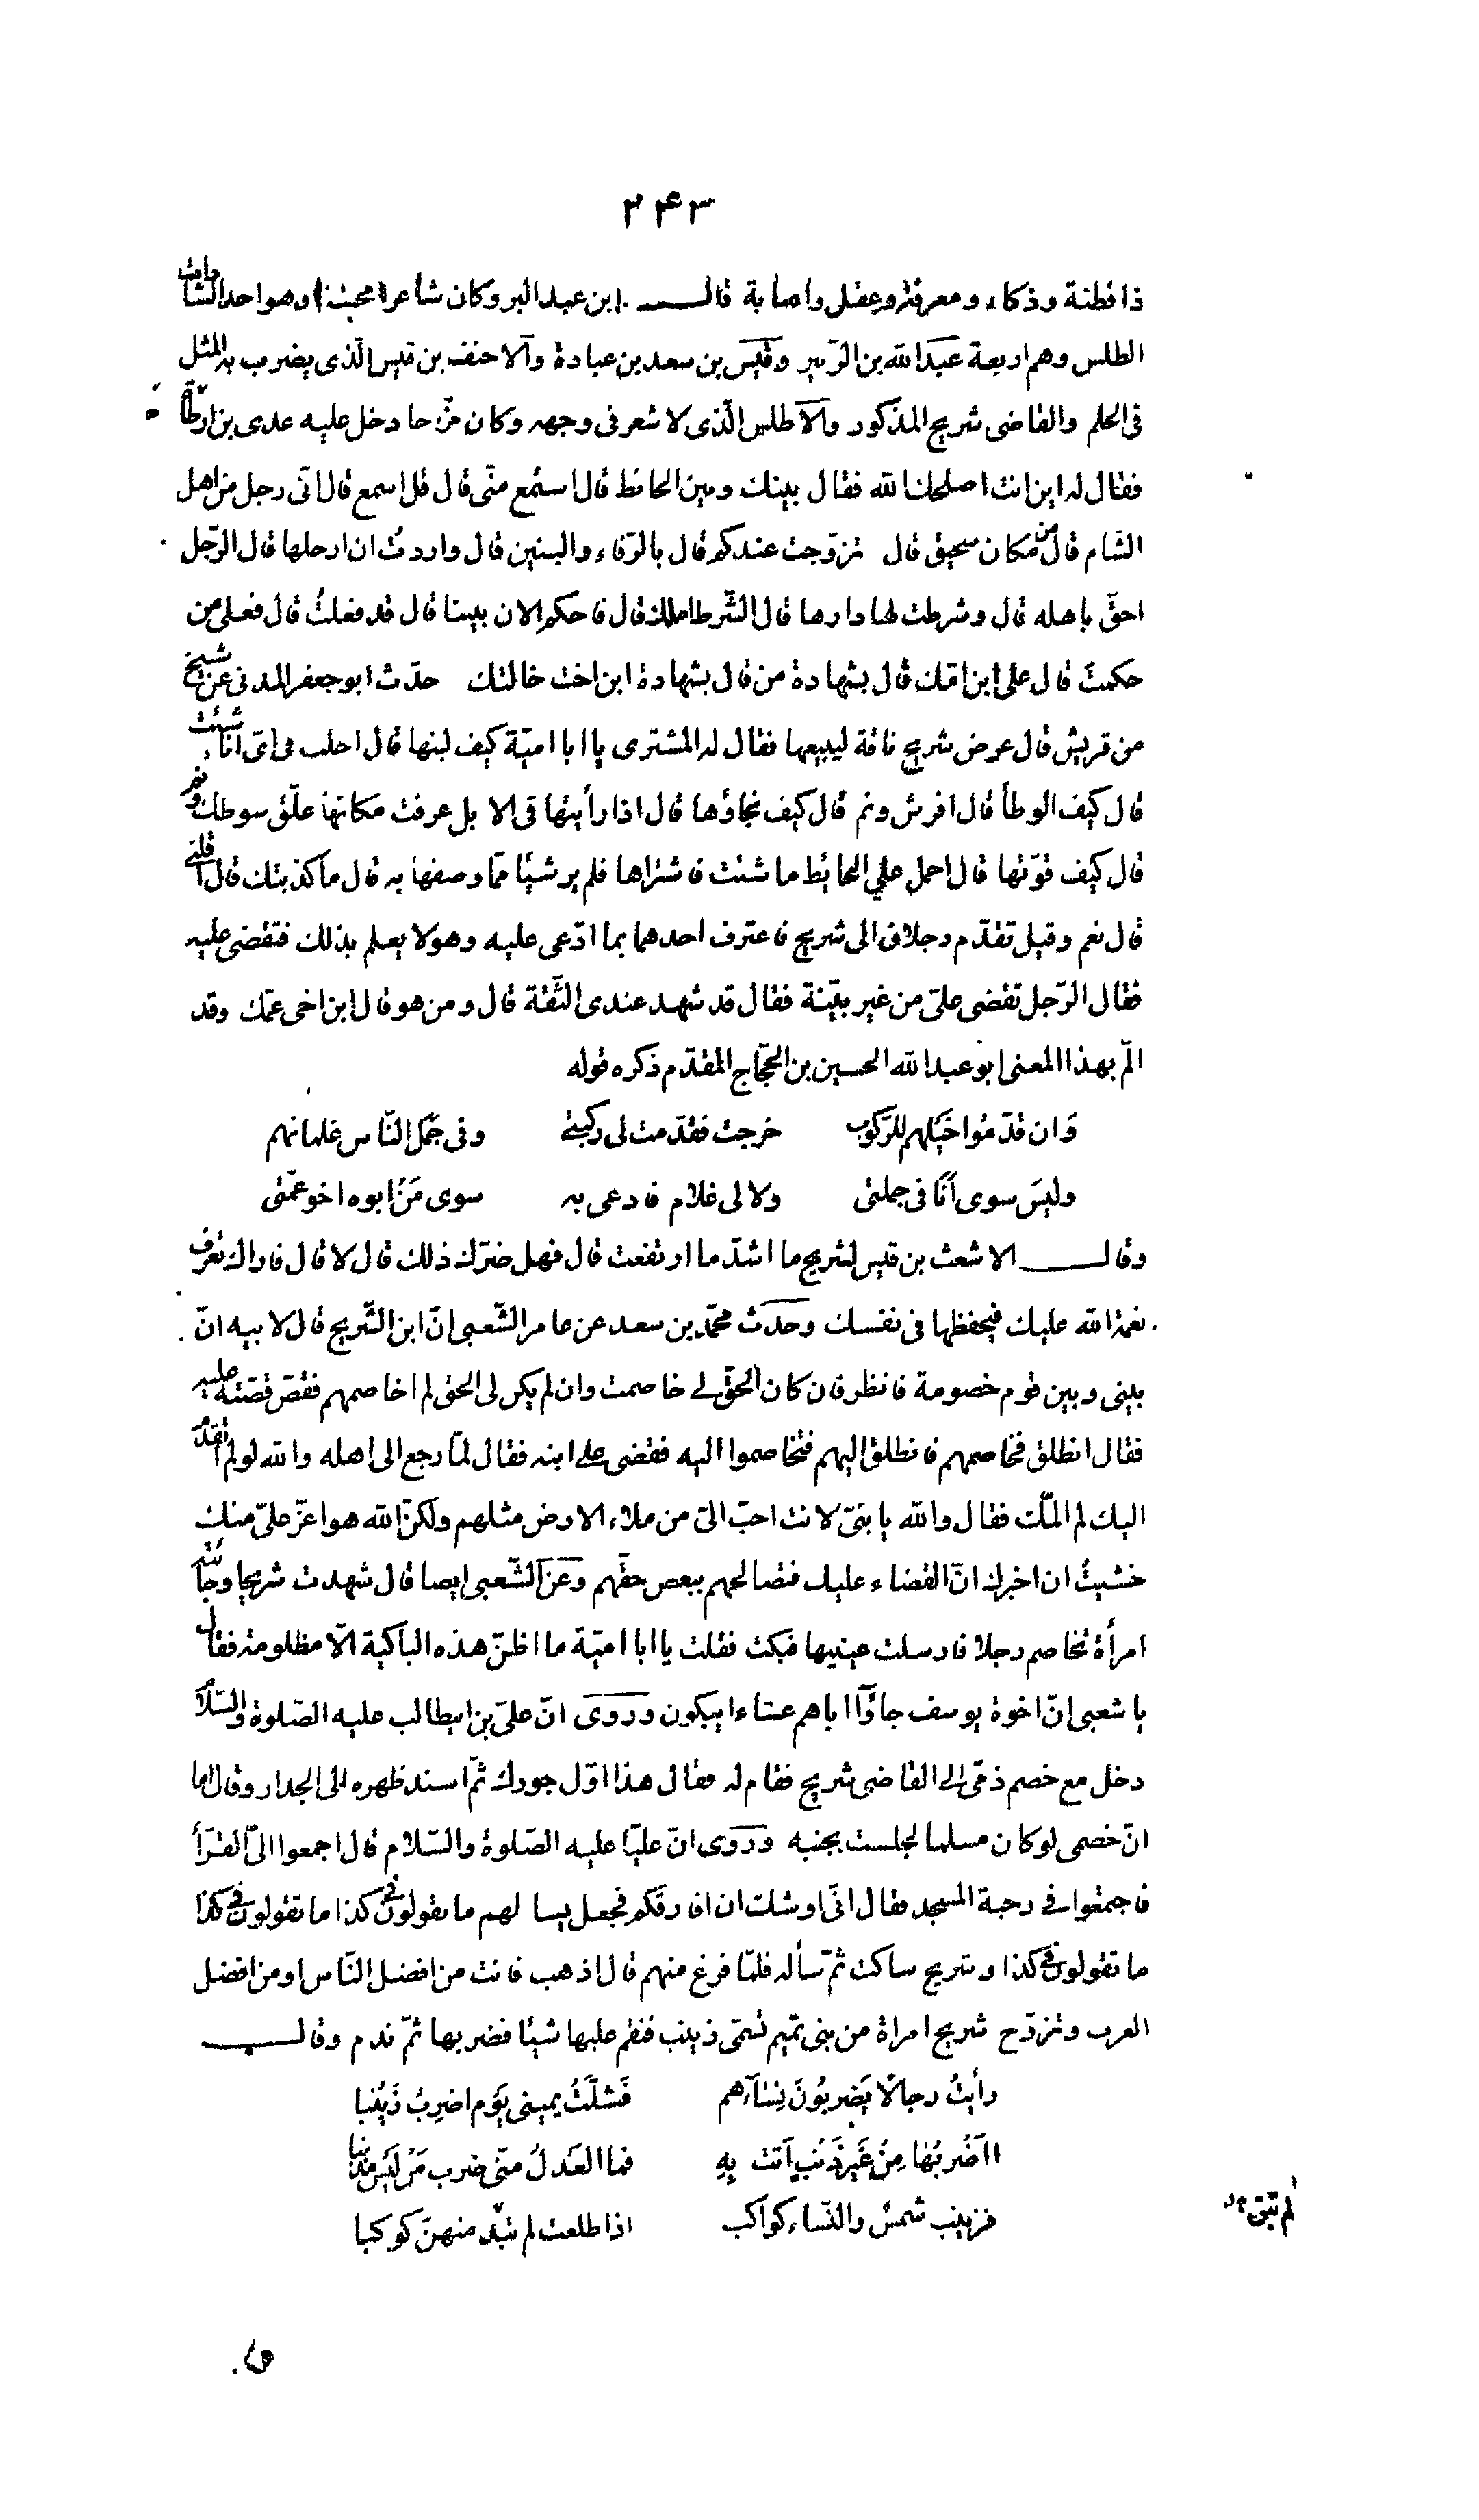 ٢٤٣
ذا فطنة وذكاء ومعرفة وعقل واصابة قال ابن عبد البر وكان شاعرا محسنا وهو احد السادات
الطلس وهم اربعة عبد الله بن الزبير وقيس بن سعد بن عبادة والاحنف بن قيس الّذى يضرب به المثل
فى الحلم والقاضى شريح المذكور والاطلس الّذى لا شعر فى وجهه وكان مزّحا دخل عليه عدى بن ارطاة
فقال له اين انت اصلحك الله فقال بينك وبين الحائط قال استمع منّى قال قل اسمع قال انّى رجل من اهل
الشام قال من مكان سحيق قال تزوّجت عندكم قال بالرّفاء والبنين قال واردتُ ان ارحلها قال الرّجل
احقّ باهله قال وشرطت لها دارها قال الشّرط املك قال فاحكم الان بيننا قال قد فعلتُ قال فعلى من
حكمتَ قال على ابن امّك قال بشهادة من قال بشهادة ابن اخت خالتك حدّث ابو جعفر المدنى عن شيخ
من قريش قال عرض شريح ناقة ليبيعها فقال له المشترى يا ابا اميّة كيف لبنها قال احلب فى اىّ اناء شئت
قال كيف الوطأ قال افرش ونم قال كيف نجاؤها قال اذا رأيتها فى الابل عرفت مكانها علّق سوطك ونم
قال كيف قوّتها قال احمل على الحائط ما شئت فاشتراها فلم ير شيئا ممّا وصفها به قال ما كذبتك قال اقلنى
قال نعم وقيل تقدّم رجلان الى شريح فاعترف احدهما بما ادّعى عليه وهو لا يعلم بذلك فتقضى عليه
فقال الرّجل تقضى علىّ من غير بيّنة فقال قد شهد عندى الثّقة قال ومن هو قال ابن اخى عمّك وقد
المّ بهذا المعنى ابو عبد الله الحسين بن الحجّاج المقدّم ذكره قوله
وَان قدّمُوا خَيلهم للرّكوب خرجت فقدّمت لى ركبتى وفى جَمَل النّاس غلمانهم
وليسَ سوى اَنَا فى جملتى ولا لى غلام فادعى به سوى مَنْ ابوه اخو عمّتى
وقال الاشعث بن قيس لشريح ما اشدّ ما ارتفعت قال فهل ضرّك ذلك قال لا قال فاراك تعرف
نعمة الله عليك فيحفظها فى نفسك وحدّث محمّد بن سعد عن عامر الشّعبى انّ ابن الشّريح قال لابيه انّ
بينى وبين قوم خصومة فانظر فان كان الحقّ لى خاصمت وان لم يكن لى الحق لم اخاصمهم فقصّ قصّته عليه
فقال انطلق فخاصمهم فانطلق اليهم فتخاصموا اليه فقضى على ابنه فقال لمّا رجع الى اهله والله لو لم اتقدّم
اليك لم المّك فقال والله يا بنىّ لانت احبّ الىّ من ملاء الارض مثلهم ولكنّ الله هو اعزّ علىّ منك
خشيتُ ان اخبرك انّ القضاء عليك فتصالحهم ببعض حقّهم وعن الشّعبى ايضا قال شهدت شريحا وجائته
امرأة تخاصم رجلا فارسلت عينيها فبكت فقلت يا ابا اميّة ما اظنّ هذه الباكية الّا مظلومة فقال
يا شعبى انّ اخوة يوسف جاؤا اباهم عشاءا يبكون وروى انّ علىّ بن ابيطالب عليه الصّلوة والسّلام
دخل مع خصم ذمّى الى القاضى شريح فقام له فقال هذا اوّل جورك ثمّ اسند ظهره الى الجدار وقال اما
انّ خصمى لو كان مسلما لجلست بجنبه وروى انّ عليّا عليه الصّلوة والسّلام قال اجمعوا الىّ القرّأ
فاجتمعوا فى رحبة المسجد فقال انّى اوشلت ان افارقكم فجعل يسا لهم ما تقولون فى كذا ما تقولون فى كذا
ما تقولون فى كذا وشريح ساكت ثمّ سأله فلمّا فرغ منهم قال اذهب فانت من افضل النّاس او من افضل
العرب وتزوّج شريح امراة من بنى تميم تسمّى زينب فنقم عليها شيئا فضربها ثمّ ندم وقال
رأيتُ رجالًا يَضربُونَ نِسَاءَهم فَشلَّتْ يمينى يَوم اضرِبُ زَيْنبا
ااَضْربُها مِنْ غَير ذَنْبٍ اَتت بِهِ فما العَدلُ منّى ضرب مَنْ لَيس مذنبا
فزينب شمسٌ والنّساء كواكب اذا طلعت لم تبْد منهنّ كوكبا
لم تبق م